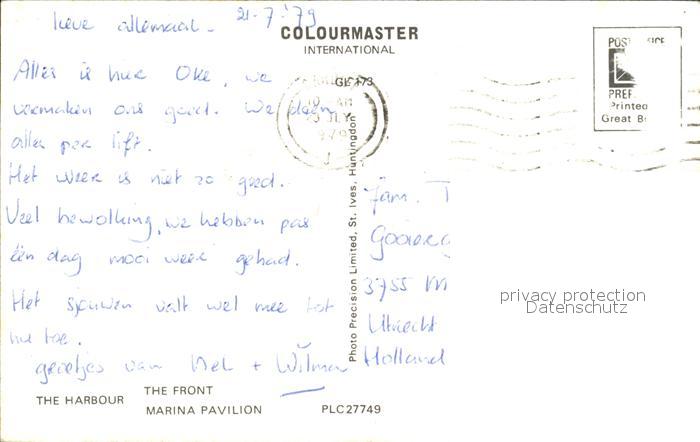 lieve allemaal. 21-7-'79
COLOURMASTER
INTERNATIONAL
GLC173
Alles is hier Oke, we
vermaken ons goed. We doen
alles per lift.
Het weer is niet zo goed.
Veel bewolking, we hebben pas
één dag mooi weer gehad.
Het sjouwen valt wel mee tot
nu toe.
groetjes van Nel + Wilma
POST
PREF
Printed
Great B
AM
JLY
1979
Photo Precision Limited, St. Ives, Huntingdon
Fam. T
Gooierg
3755 M
Utrecht
Holland
privacy protection
Datenschutz
THE HARBOUR THE FRONT
MARINA PAVILION PLC27749